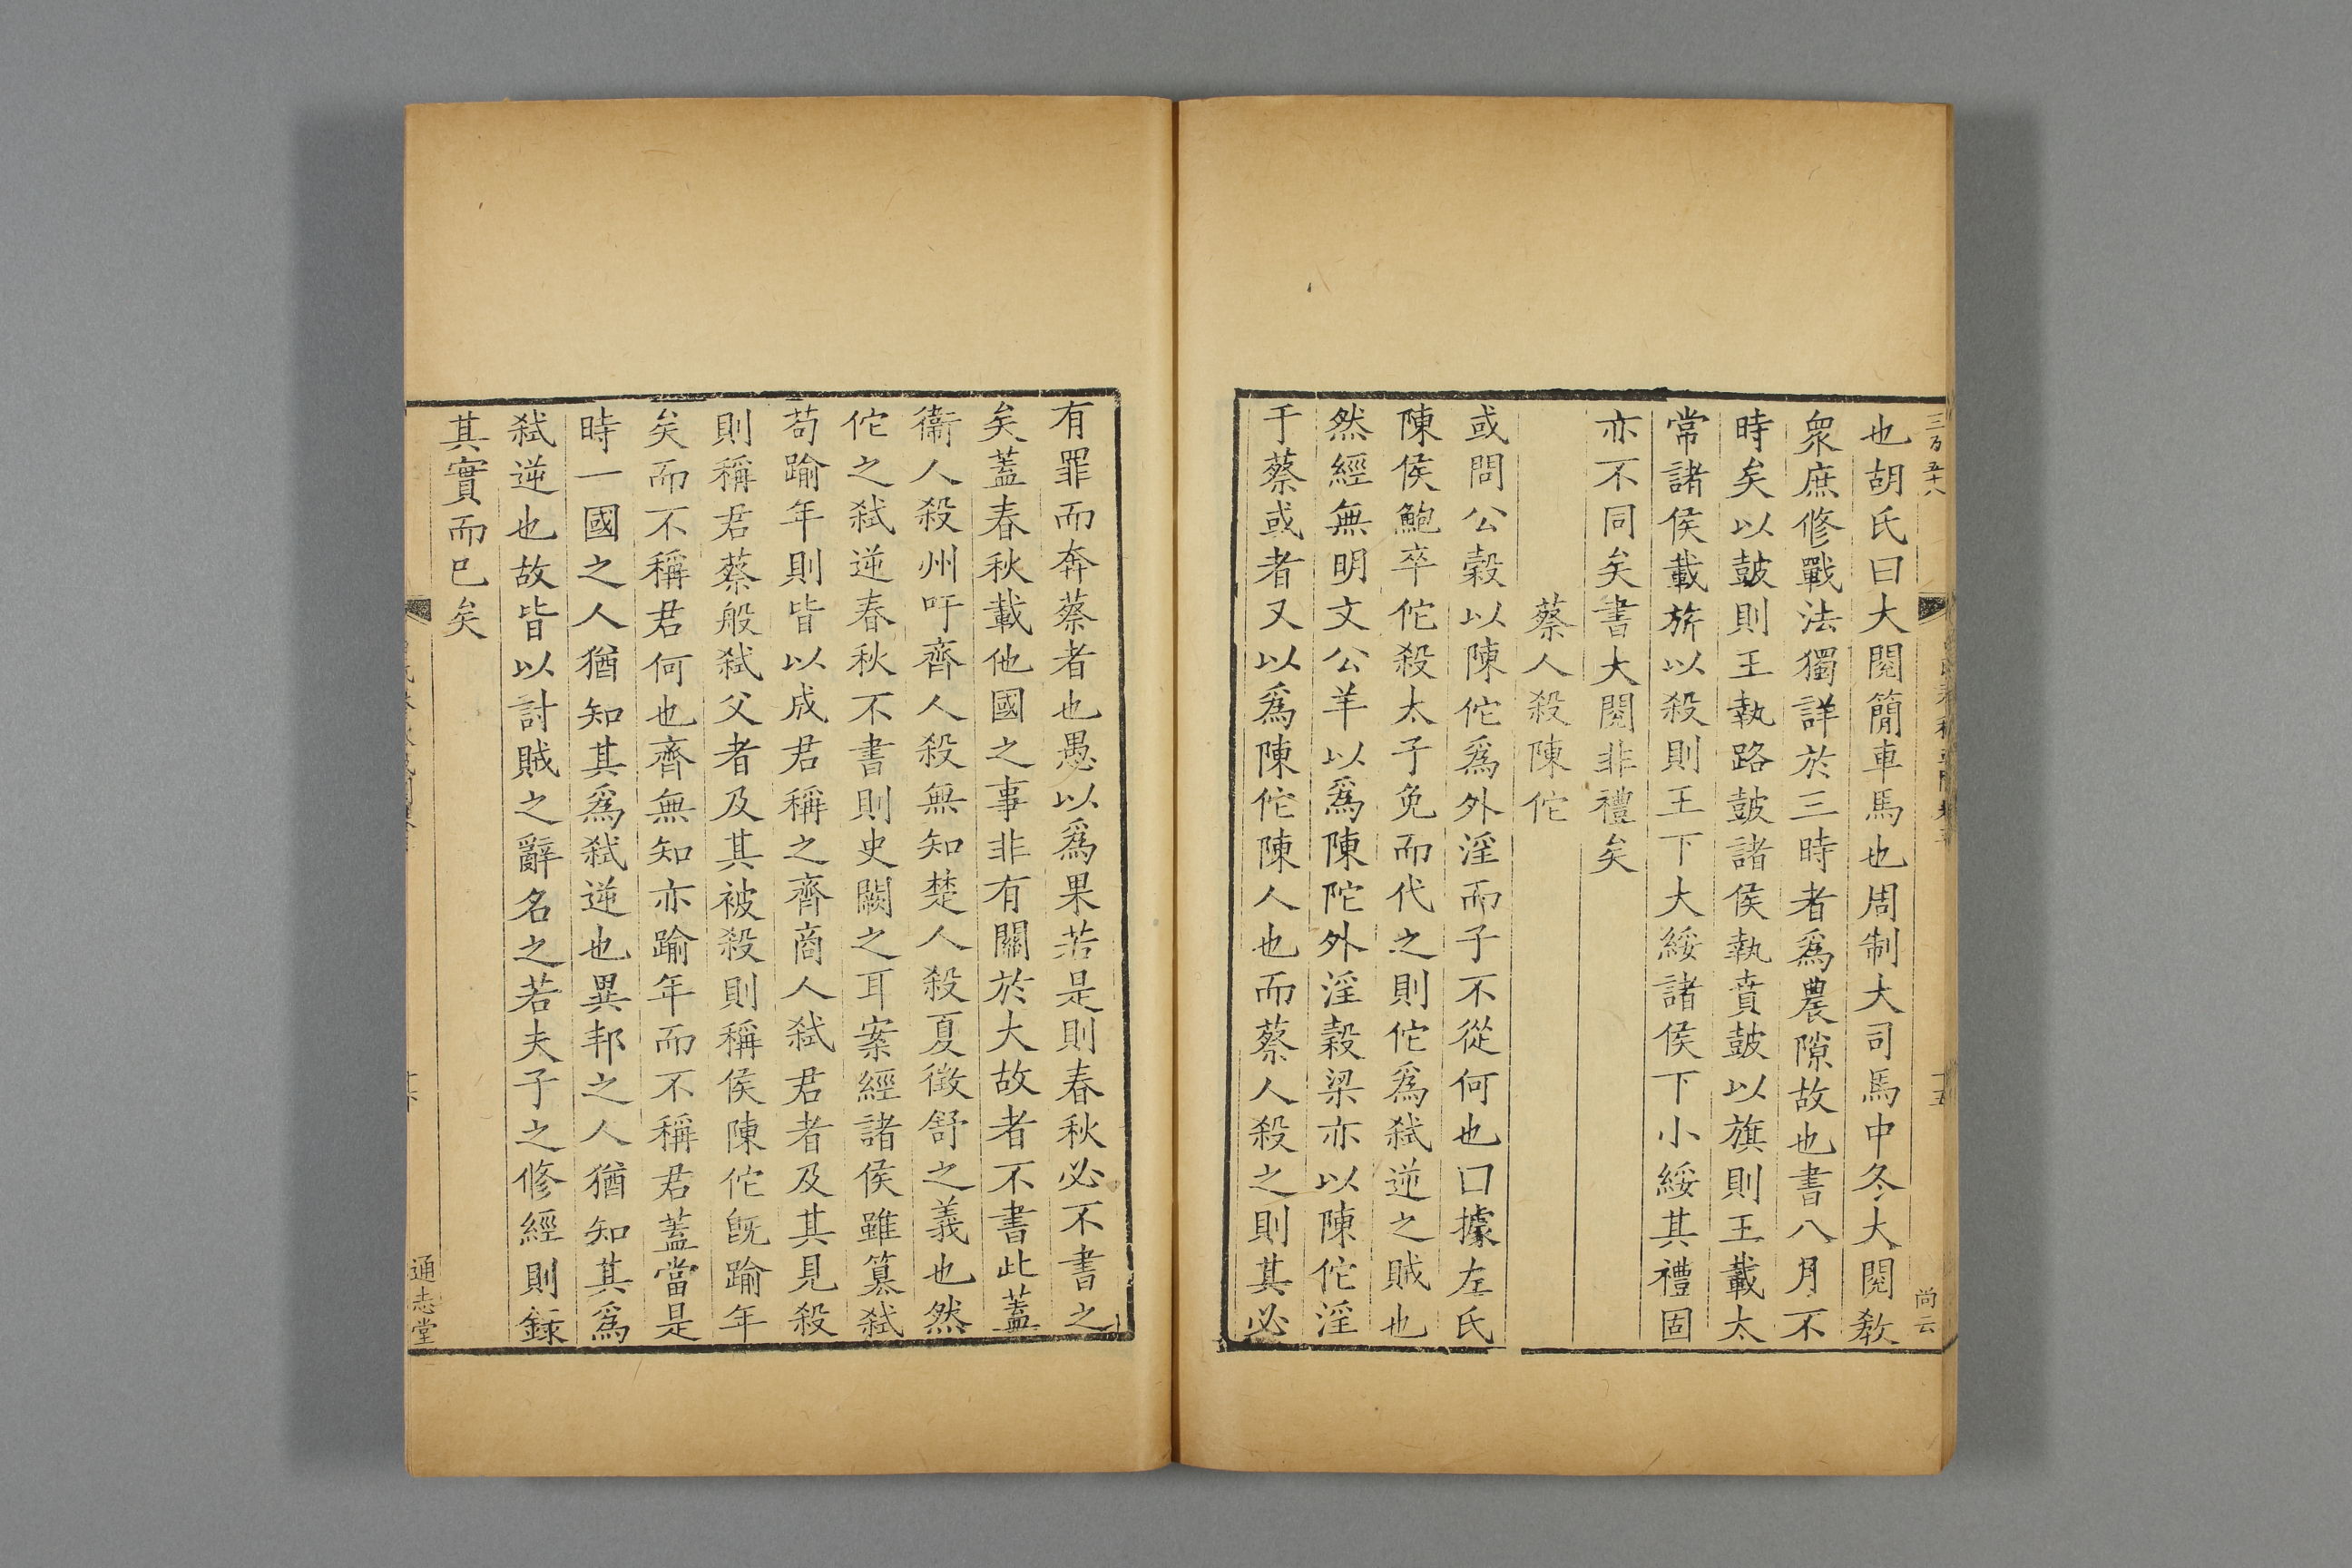 三百五十八
十五
尚云
也胡氏曰大閱簡車馬也周制大司馬中冬大閱敎
衆庶修戰法獨詳於三時者爲農隙故也書八月不
時矣以鼓則王執路鼓諸侯執賁鼓以旗則王載太
常諸侯載旂以殺則王下大綏諸侯下小綏其禮固
亦不同矣書大閱非禮矣
蔡人殺陳佗
或問公穀以陳佗爲外淫而子不從何也曰據左氏
陳侯鮑卒佗殺太子免而代之則佗爲弑逆之賊也
然經無明文公羊以爲陳陀外淫穀梁亦以陳佗淫
于蔡或者又以爲陳佗陳人也而蔡人殺之則其必
有罪而奔蔡者也愚以爲果若是則春秋必不書之
矣蓋春秋載他國之事非有關於大故者不書此蓋
衞人殺州吁齊人殺無知楚人殺夏徵舒之義也然
佗之弑逆春秋不書則史闕之耳案經諸侯雖篡弑
苟踰年則皆以成君稱之齊商人弑君者及其見殺
則稱君蔡般弑父者及其被殺則稱侯陳佗旣踰年
矣而不稱君何也齊無知亦踰年而不稱君蓋當是
時一國之人猶知其爲弑逆也異邦之人猶知其爲
弑逆也故皆以討賊之辭名之若夫子之修經則錄
其實而巳矣
通志堂